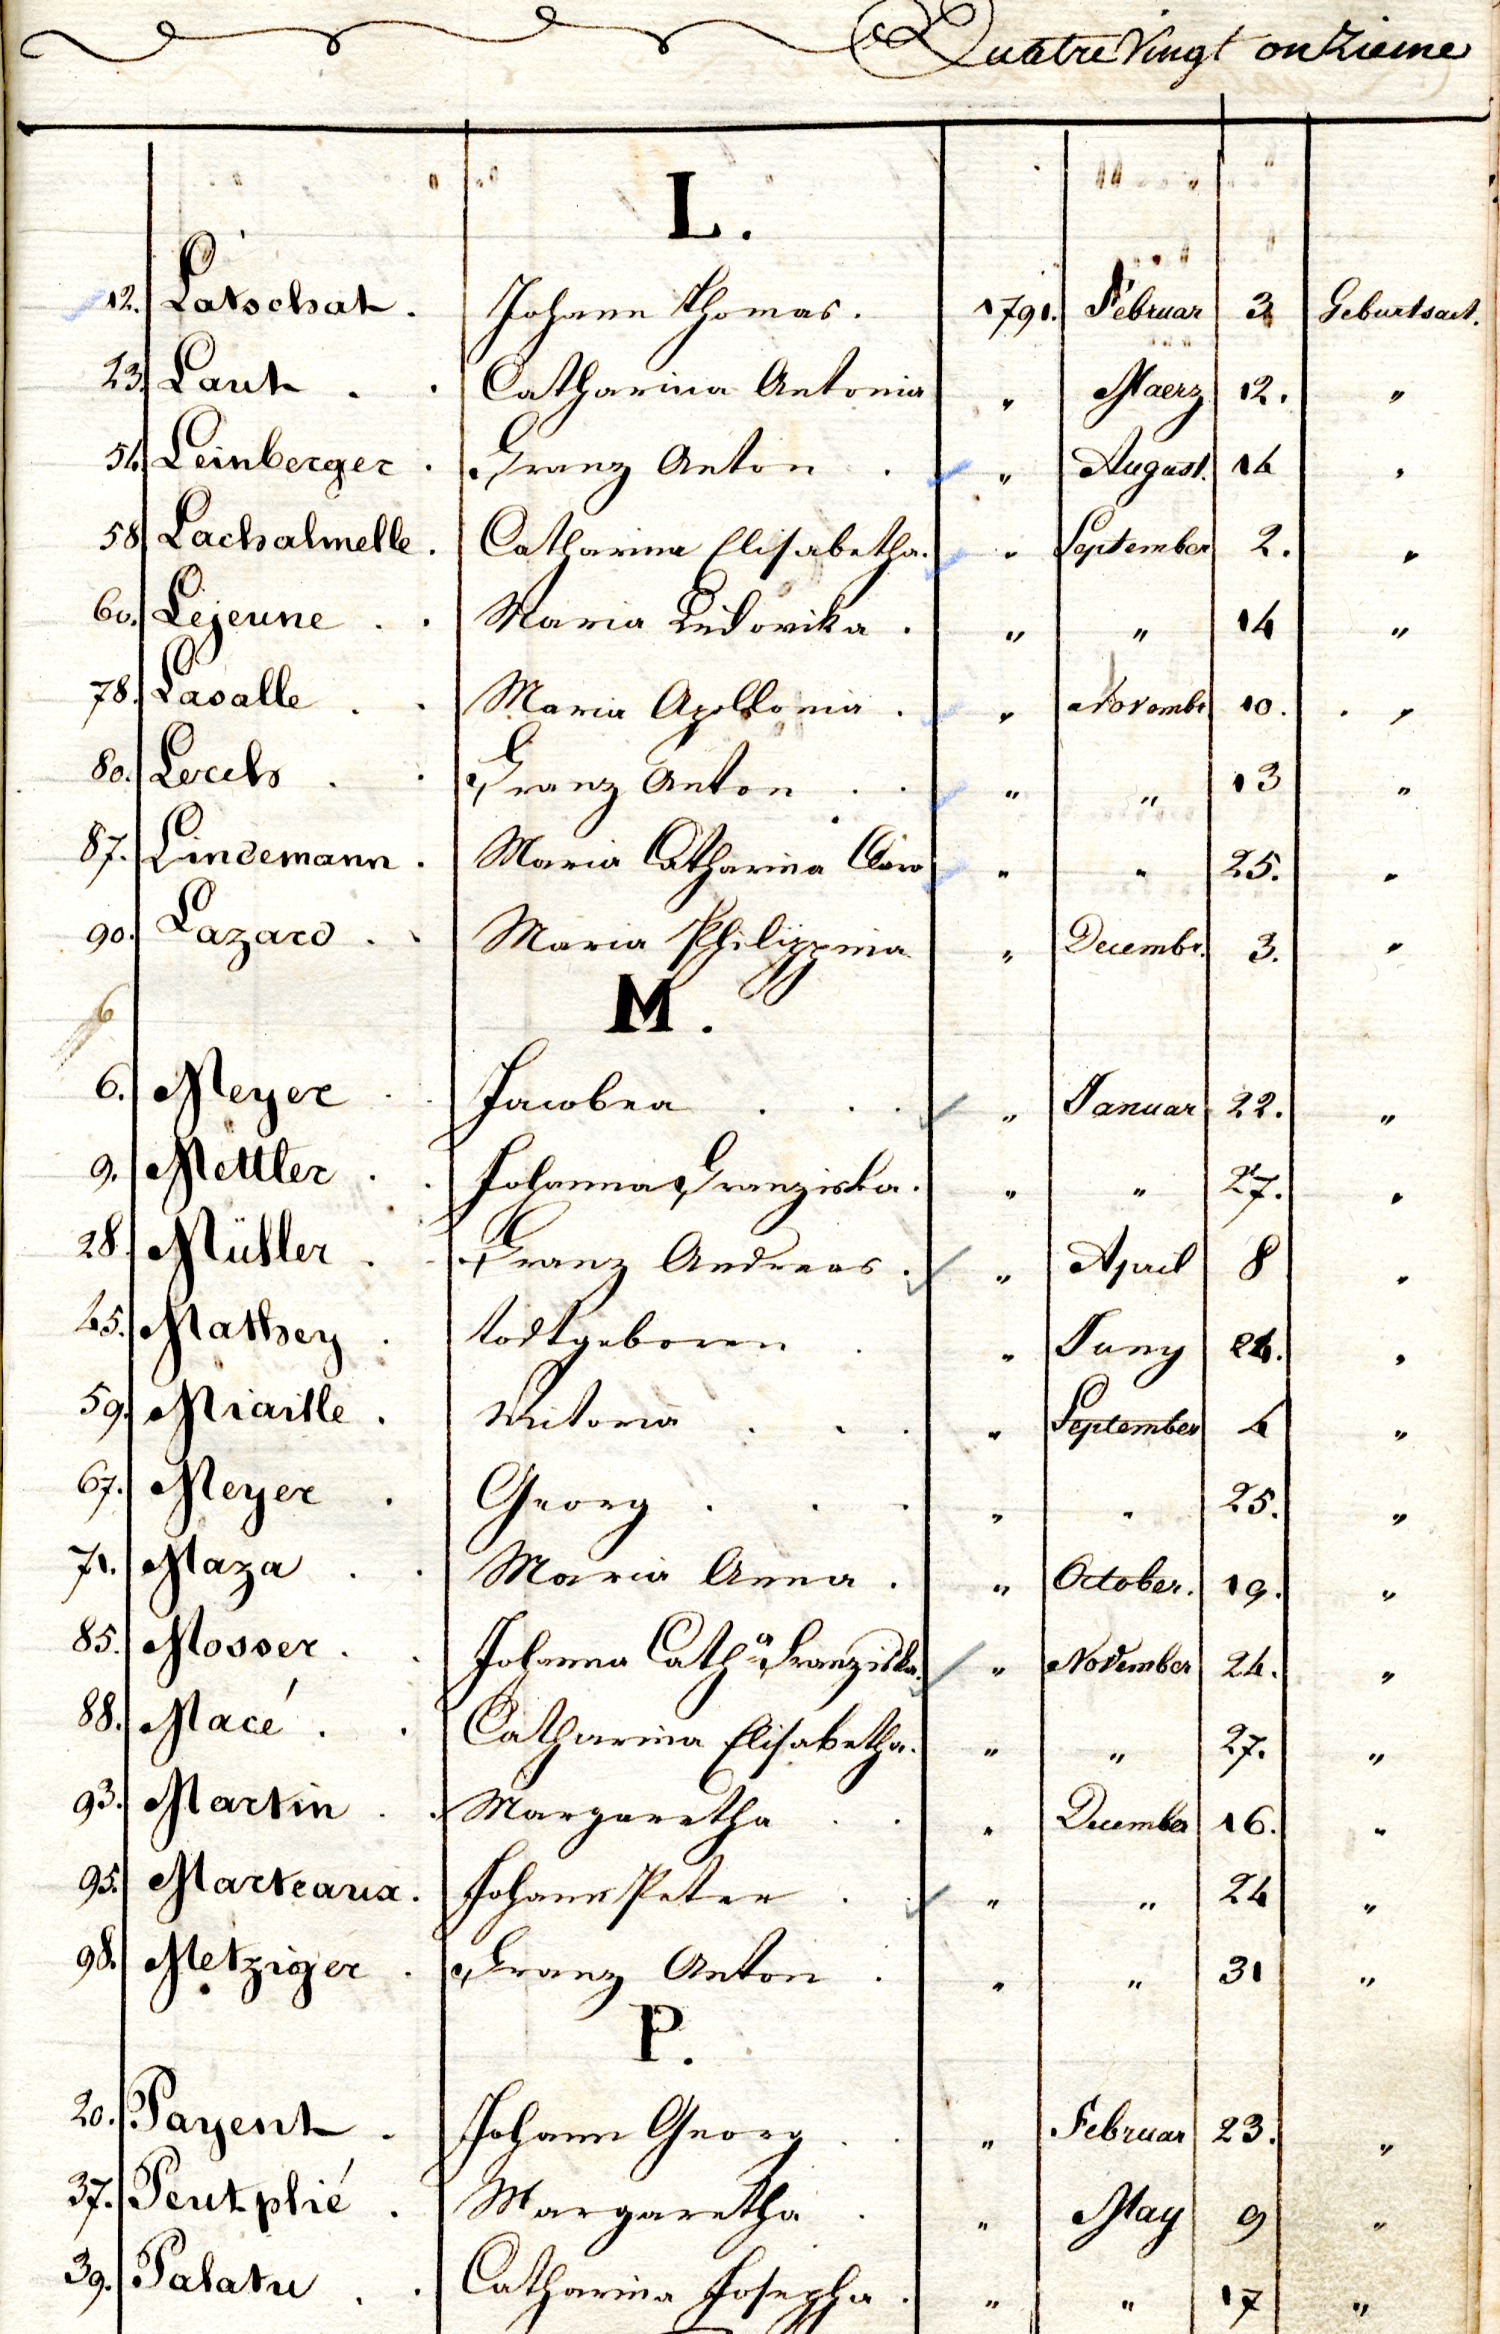 Quatre Vingt onzieme
L.
12. Latschat. Johann Thomas. 1791. Februar 3 Geburtsact.
23. Laut . . Catharina Antonia " Maerz 12. "
54. Leinberger . Franz Anton . " August. 14 "
58 Lachalmelle. Catharina Elisabetha. " September 2. "
60. Lejeune . . Maria Ludovika . " " 14 "
78. Lasalle . . Maria Apollonia . " Novembr 10. "
80. Lerch . . Franz Anton . . " " 13 "
87. Lindemann . Maria Catharina Clara " " 25. "
90. Lazard . . Maria Philippina " Decembr. 3. "
6
M.
6. Meyer . . Jacobea . . . " Januar 22. "
9. Mettler . . Johanna Franziska. " " 27. "
28. Müller . . Franz Andreas . " April 8 "
45. Mathey . todtgeboren . " Juny 24. "
59. Miaille . Victoria . . . " September 4 "
67. Meyer . Georg . . . " " 25. "
71. Maza . . Maria Anna . " October. 19. "
85. Mosser . . Johanna Cath.a Franziska. " November 24. "
88. Macé . . Catharina Elisabetha. " " 27. "
93. Martin . . Margaretha . . " December 16. "
95. Marteaux. Johann Peter . . " " 24 "
98. Metziger . Franz Anton . " " 31 "
P.
20. Payent . Johann Georg . . " Februar 23. "
37. Peutphié . Margaretha . " May 9 "
39. Palatu . . Catharina Josepha . " " 17 "